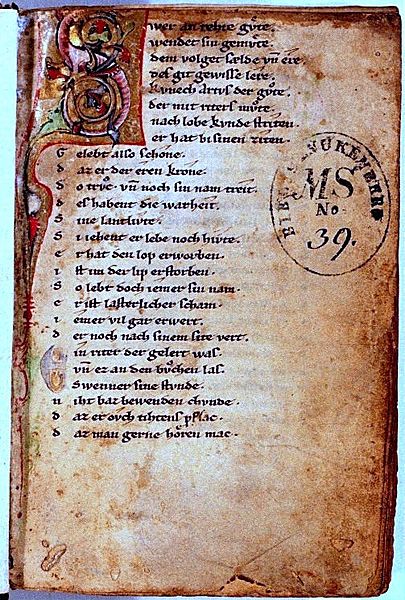 Swer an rehte gůte.
wendet sin gemvte.
dem volget sælde vñ ere.
des git gewisse lere.
kvnech Artvs der gůte.
der mit riters mvte.
nach lobe kvnde striten.
er hat bi sinen ziten.
G elebt also schone.
d az er der eren krone.
d o trvc. vñ noch sin nam treit.
d es habent die warheit.
S ine lantlivte.
S i iehent er lebe noch hivte.
e r hat den lop erworben.
i st im der lip erstorben.
S o lebt doch iemer sin nam.
e r ist lasterlicher scham.
i emer vil gar erwert.
d er noch nach sinem site vert.
E in riter der gelert was.
vñ ez an den bůchen las.
S wenner sine stvnde.
n iht baz bewenden chvnde.
d az er ovch tihtens pflac.
d az man gerne hoͤren mac.
MS
No
39.